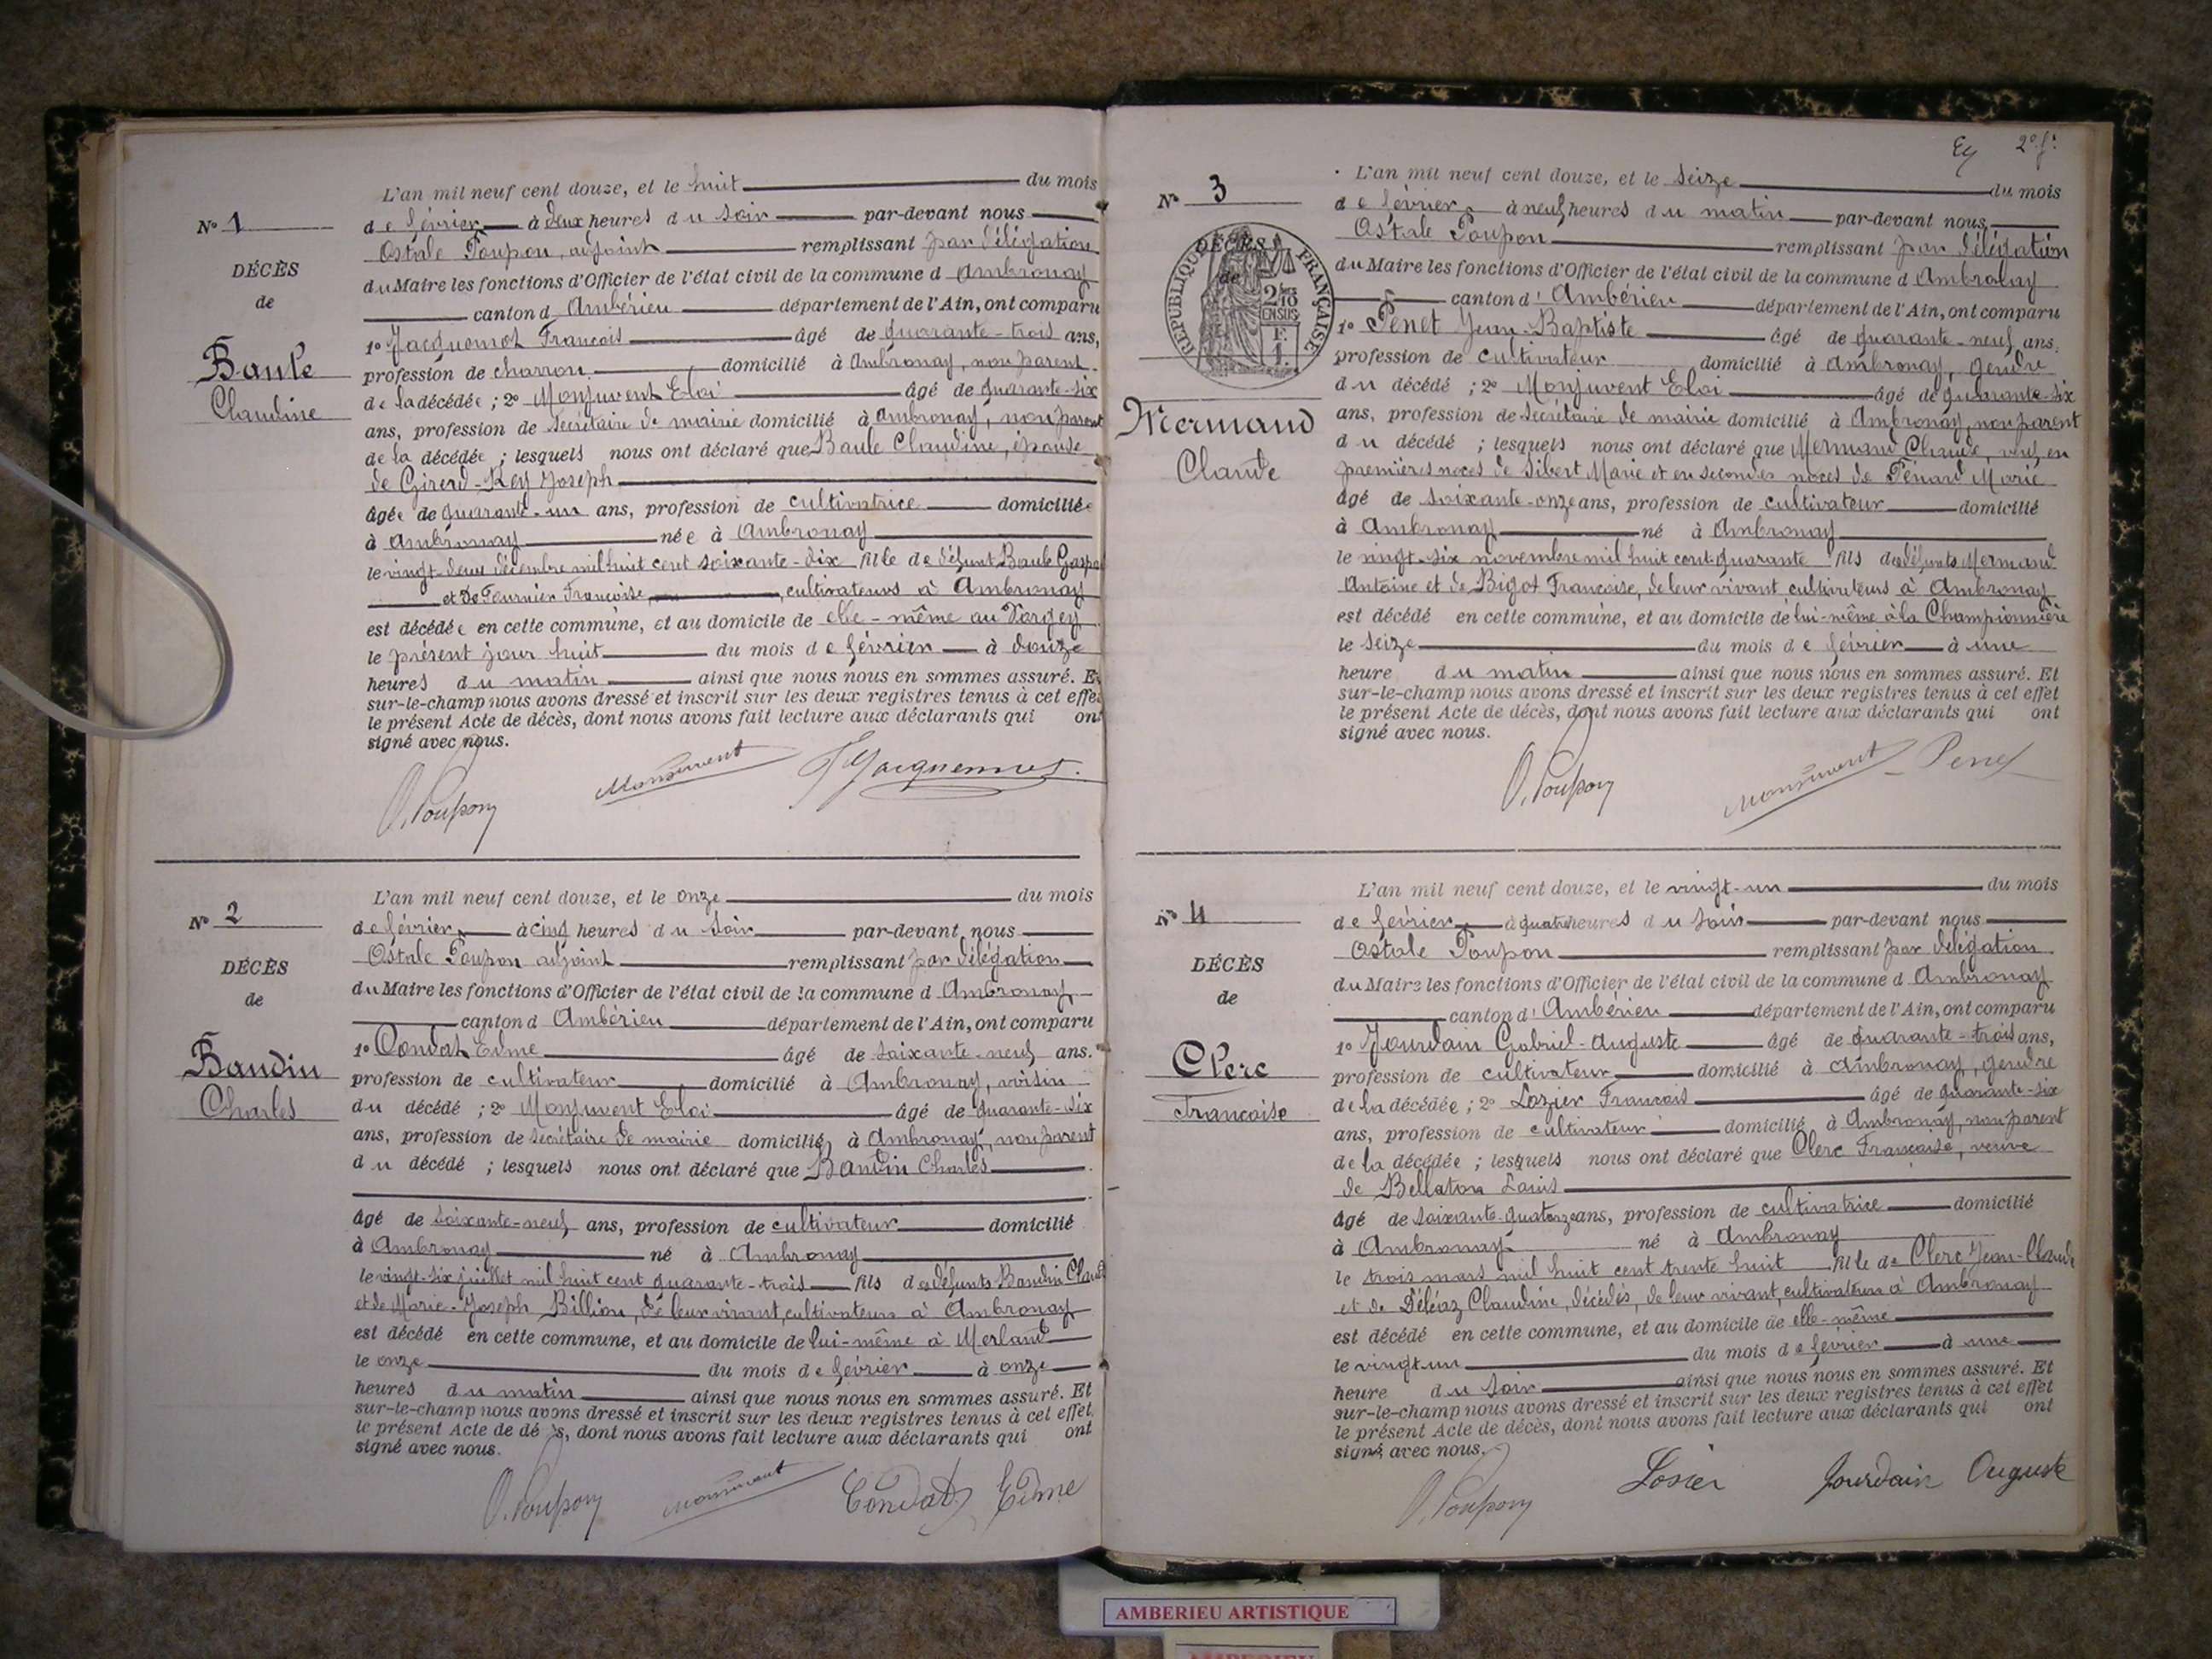 L'an mil neuf cent douze, et le huit du mois
N° 1
de février à deux heures du soir par-devant nous
Ostale Poupon, adjoint remplissant par délégation
DÉCÈS
du Maire les fonctions d'Officier de l'état civil de la commune d Ambronay
de
canton d Ambérieu département de l'Ain, ont comparu
1° Jacquemot François âgé de quarante-trois ans,
Baule
profession de charron domicilié à Ambronay, non parent
Claudine
de la décédée ; 2° Monjuvent Eloi âgé de quarante-six
ans, profession de secrétaire de mairie domicilié à Ambronay, non parent
de la décédée ; lesquels nous ont déclaré que Baule Claudine, épouse
de Girerd-Rey Joseph
âgée de quarante-un ans, profession de cultivatrice domiciliée
à Ambronay née à Ambronay
le vingt-deux décembre mil huit cent soixante-dix fille de défunt Baule Gaspa
et de Fournier Françoise, cultivateurs à Ambronay
est décédée en cette commune, et au domicile de elle-même au
le présent jour huit du mois de février à douze
heures du matin ainsi que nous nous en sommes assuré. E
sur-le-champ nous avons dressé et inscrit sur les deux registres tenus à cet effe
le présent Acte de décès, dont nous avons fait lecture aux déclarants qui ont
signé avec nous.
O. Poupon Monjuvent Jacquemot
L'an mil neuf cent douze, et le onze du mois
N° 2
de février à cinq heures du soir par-devant nous
Ostale Poupon adjoint remplissant par délégation
DÉCÈS
du Maire les fonctions d'Officier de l'état civil de la commune d Ambronay
de
canton d Ambérieu département de l'Ain, ont comparu
1° Condat Edme âgé de soixante-neuf ans.
Baudin
profession de cultivateur domicilié à Ambronay, voisin
Charles
du décédé ; 2° Monjuvent Eloi âgé de quarante-six
ans, profession de secrétaire de mairie domicilié à Ambronay, non parent
du décédé ; lesquels nous ont déclaré que Baudin Charles
âgé de soixante-neuf ans, profession de cultivateur domicilié
à Ambronay né à Ambronay
le vingt-six juillet mil huit cent quarante-trois fils des défunts Baudin Claude
et de Marie-Joseph Billion, de leur vivant, cultivateurs à Ambronay
est décédé en cette commune, et au domicile de lui-même à Merland
le onze du mois de février à onze
heures du matin ainsi que nous nous en sommes assuré. Et
sur-le-champ nous avons dressé et inscrit sur les deux registres tenus à cet effet,
le présent Acte de dé s, dont nous avons fait lecture aux déclarants qui ont
signé avec nous.
O. Poupon Monjuvent Condat Edme
2e f.
L'an mil neuf cent douze, et le seize du mois
N° 3
de février à neuf heures du matin par-devant nous
Ostale Poupon remplissant par délégation
DÉCÈS
du Maire les fonctions d'Officier de l'état civil de la commune d Ambronay
de
RÉPUBLIQUE FRANÇAISE
canton d' Ambérieu département de l'Ain, ont comparu
1° Penet Jean-Baptiste âgé de quarante-neuf ans,
profession de cultivateur domicilié à Ambronay, gendre
du décédé ; 2° Monjuvent Eloi âgé de quarante-six
Mermand
ans, profession de secrétaire de mairie domicilié à Ambronay, non parent
Claude
du décédé ; lesquels nous ont déclaré que Mermand Claude, veuf en
premières noces de Sibert Marie et en secondes noces de Pénard Marie
âgé de soixante-onze ans, profession de cultivateur domicilié
à Ambronay né à Ambronay
le vingt-six novembre mil huit cent quarante fils des défunts Mermand
Antoine et de Bigot Françoise, de leur vivant cultivateurs à Ambronay
est décédé en cette commune, et au domicile de lui-même à la Championnière
le seize du mois de février à une
heure du matin ainsi que nous nous en sommes assuré. Et
sur-le-champ nous avons dressé et inscrit sur les deux registres tenus à cet effet
le présent Acte de décès, dont nous avons fait lecture aux déclarants qui ont
signé avec nous.
O. Poupon Monjuvent Penet
L'an mil neuf cent douze, et le vingt-un du mois
N° 4
de février à quatre heures du soir par-devant nous
Ostale Poupon remplissant par délégation
DÉCÈS
du Maire les fonctions d'Officier de l'état civil de la commune d Ambronay
de
canton d' Ambérieu département de l'Ain, ont comparu
1° Jourdain Gabriel-Auguste âgé de quarante-trois ans,
Clerc
profession de cultivateur domicilié à Ambronay, gendre
Françoise
de la décédée ; 2° Lozier François âgé de quarante-six
ans, profession de cultivateur domicilié à Ambronay, non parent
de la décédée ; lesquels nous ont déclaré que Clerc Françoise, veuve
de Bellaton Louis
âgé de soixante-quatorze ans, profession de cultivatrice domicilié
à Ambronay né à Ambronay
le trois mars mil huit cent trente huit fille de Clerc Jean-Claude
et de Déléaz Claudine, décédés, de leur vivant, cultivateurs à Ambronay
est décédé en cette commune, et au domicile de elle-même
le vingt-un du mois de février à une
heure du soir ainsi que nous nous en sommes assuré. Et
sur-le-champ nous avons dressé et inscrit sur les deux registres tenus à cet effet
le présent Acte de décès, dont nous avons fait lecture aux déclarants qui ont
signé avec nous.
O. Poupon Losier Jourdain Auguste
AMBERIEU ARTISTIQUE
AMBERIEU